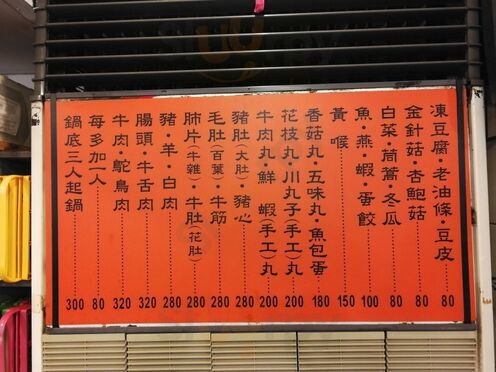 凍豆腐・老油條・豆皮 80
金針菇・杏鮑菇 80
白菜・茼蒿・冬瓜 80
魚・燕・蝦・蛋餃 100
黃喉 150
香菇丸・五味丸・魚包蛋 180
花枝丸・川丸子(手工)丸 200
牛肉丸・鮮蝦(手工)丸 200
豬肚(大肚)・豬心 280
毛肚(百葉)・牛筋 280
肺片(牛雜)・牛肚(花肚) 280
豬・羊・白肉 280
腸頭・牛舌肉 320
牛肉・鴕鳥肉 320
每多加一人 80
鍋底三人起鍋 300